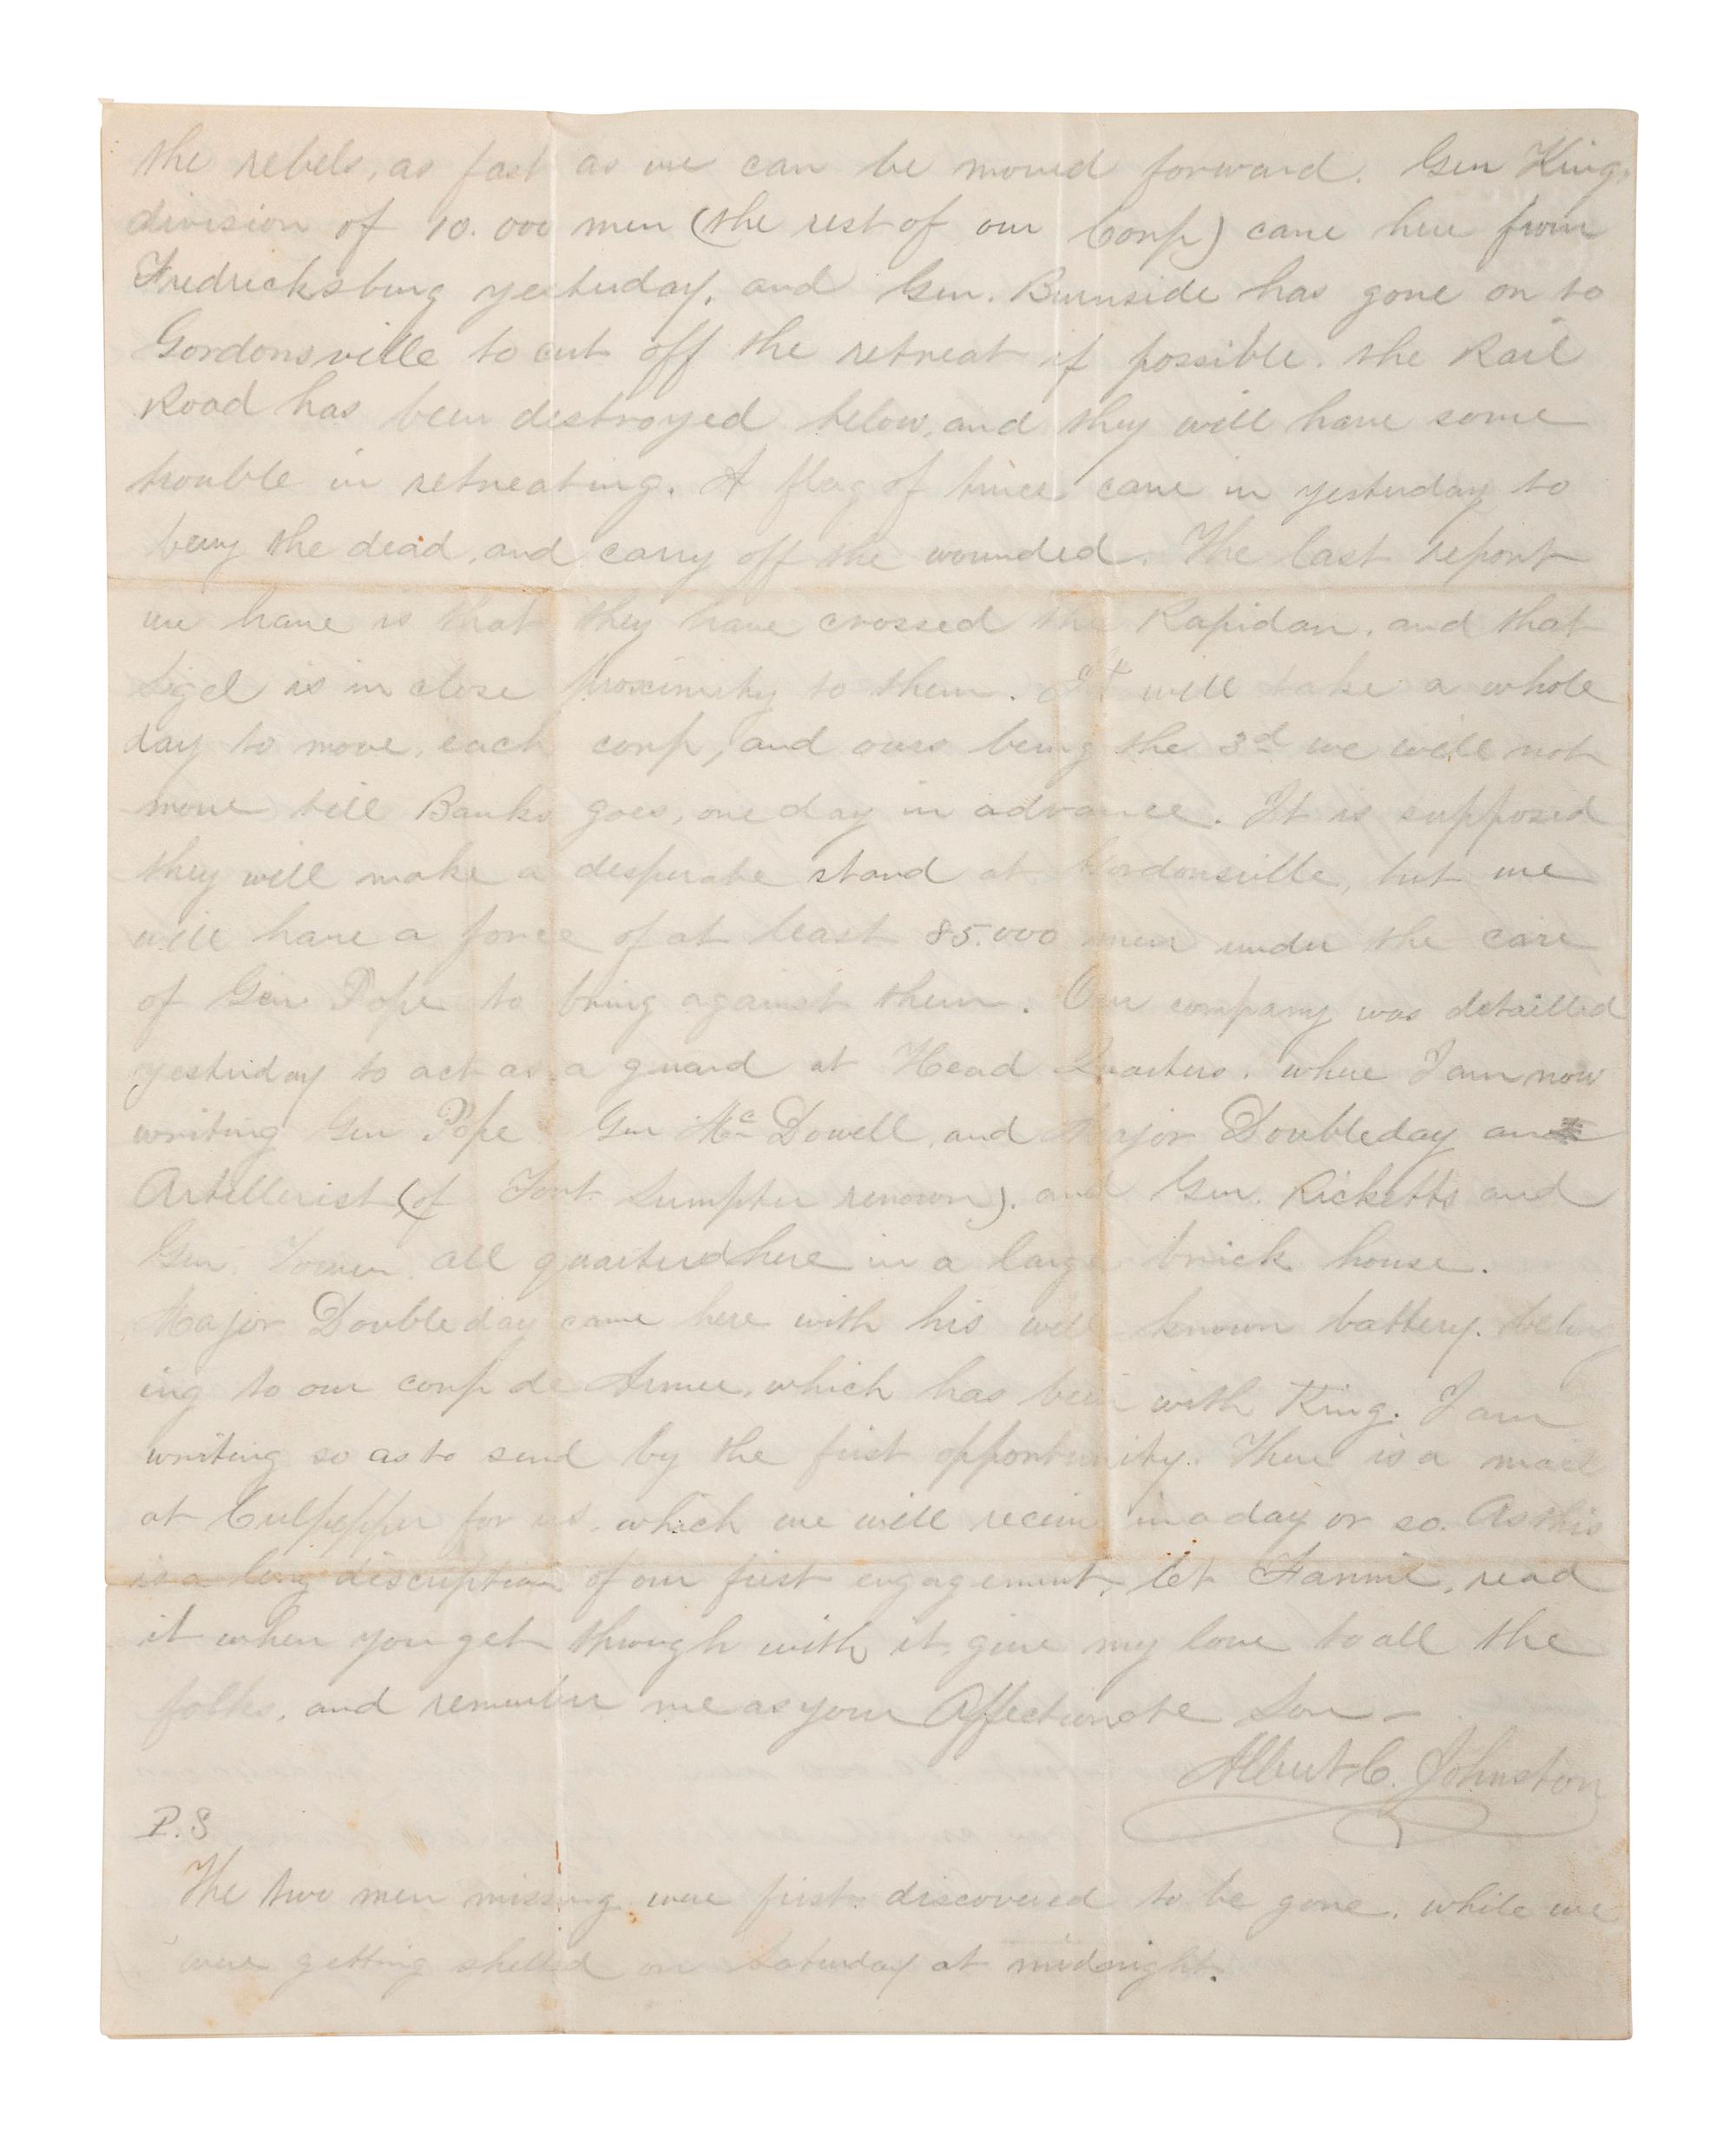 the rebels, as fast as we can be moved forward. Gen Kings
division of 10.000 men (the rest of our Corp) came here from
Fredricksburg yesterday, and Gen. Burnside has gone on to
Gordonsville to cut off the retreat if possible. the Rail
Road has been destroyed below, and they will have some
trouble in retreating. A flag of truce came in yesterday to
bury the dead, and carry off the wounded. The last report
we have is that they have crossed the Rapidan, and that
Sigel is in close proximity to them. It will take a whole
day to move, each corp, and ours being the 3d we will not
move till Banks goes, one day in advance. It is supposed
they will make a desperate stand at Gordonsville, but we
will have a force of at least 85.000 men under the care
of Gen Pope to bring against them. Our company was detailled
yesterday to act as a guard at Head Quarters. where I am now
writing Gen Pope Gen Mc Dowell, and Major Doubleday an
Artillerist (of Fort Sumpter renown). and Gen. Ricketts and
Gen. Tower all quartered here in a large brick house.
Major Doubleday came here with his well known battery. belong
ing to our corp de Armee, which has been with King. I am
writing so as to send by the first opportunity. There is a mail
at Culpepper for us. which we will receive in a day or so. As this
is a long discription of our first engagement, let Fannie, read
it when you get through with it, give my love to all the
folks, and remember me as your Affectionate Son—
Albert C. Johnston
P.S
The two men missing were first discovered to be gone. while we
were getting shelled on Saturday at midnight.